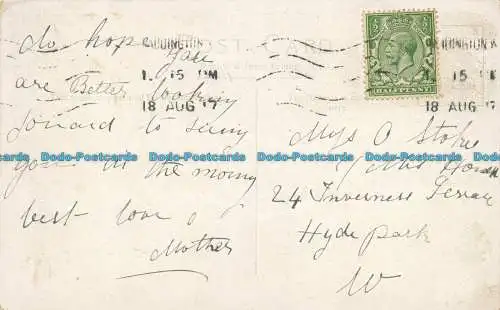 do hope you
are Better looking
forward to seing
you in the morning
best love
Mother
PADDINGTON
1. 15 PM
18 AUG 17
POST CARD
HALFPENNY
PADDINGTON
1. 15 PM
18 AUG 17
Dodo-Postcards Dodo-Postcards Dodo-Postcards Dodo-Postcards Dodo-Postcards
O Stoke
24 Inverness Terrace
Hyde park
W